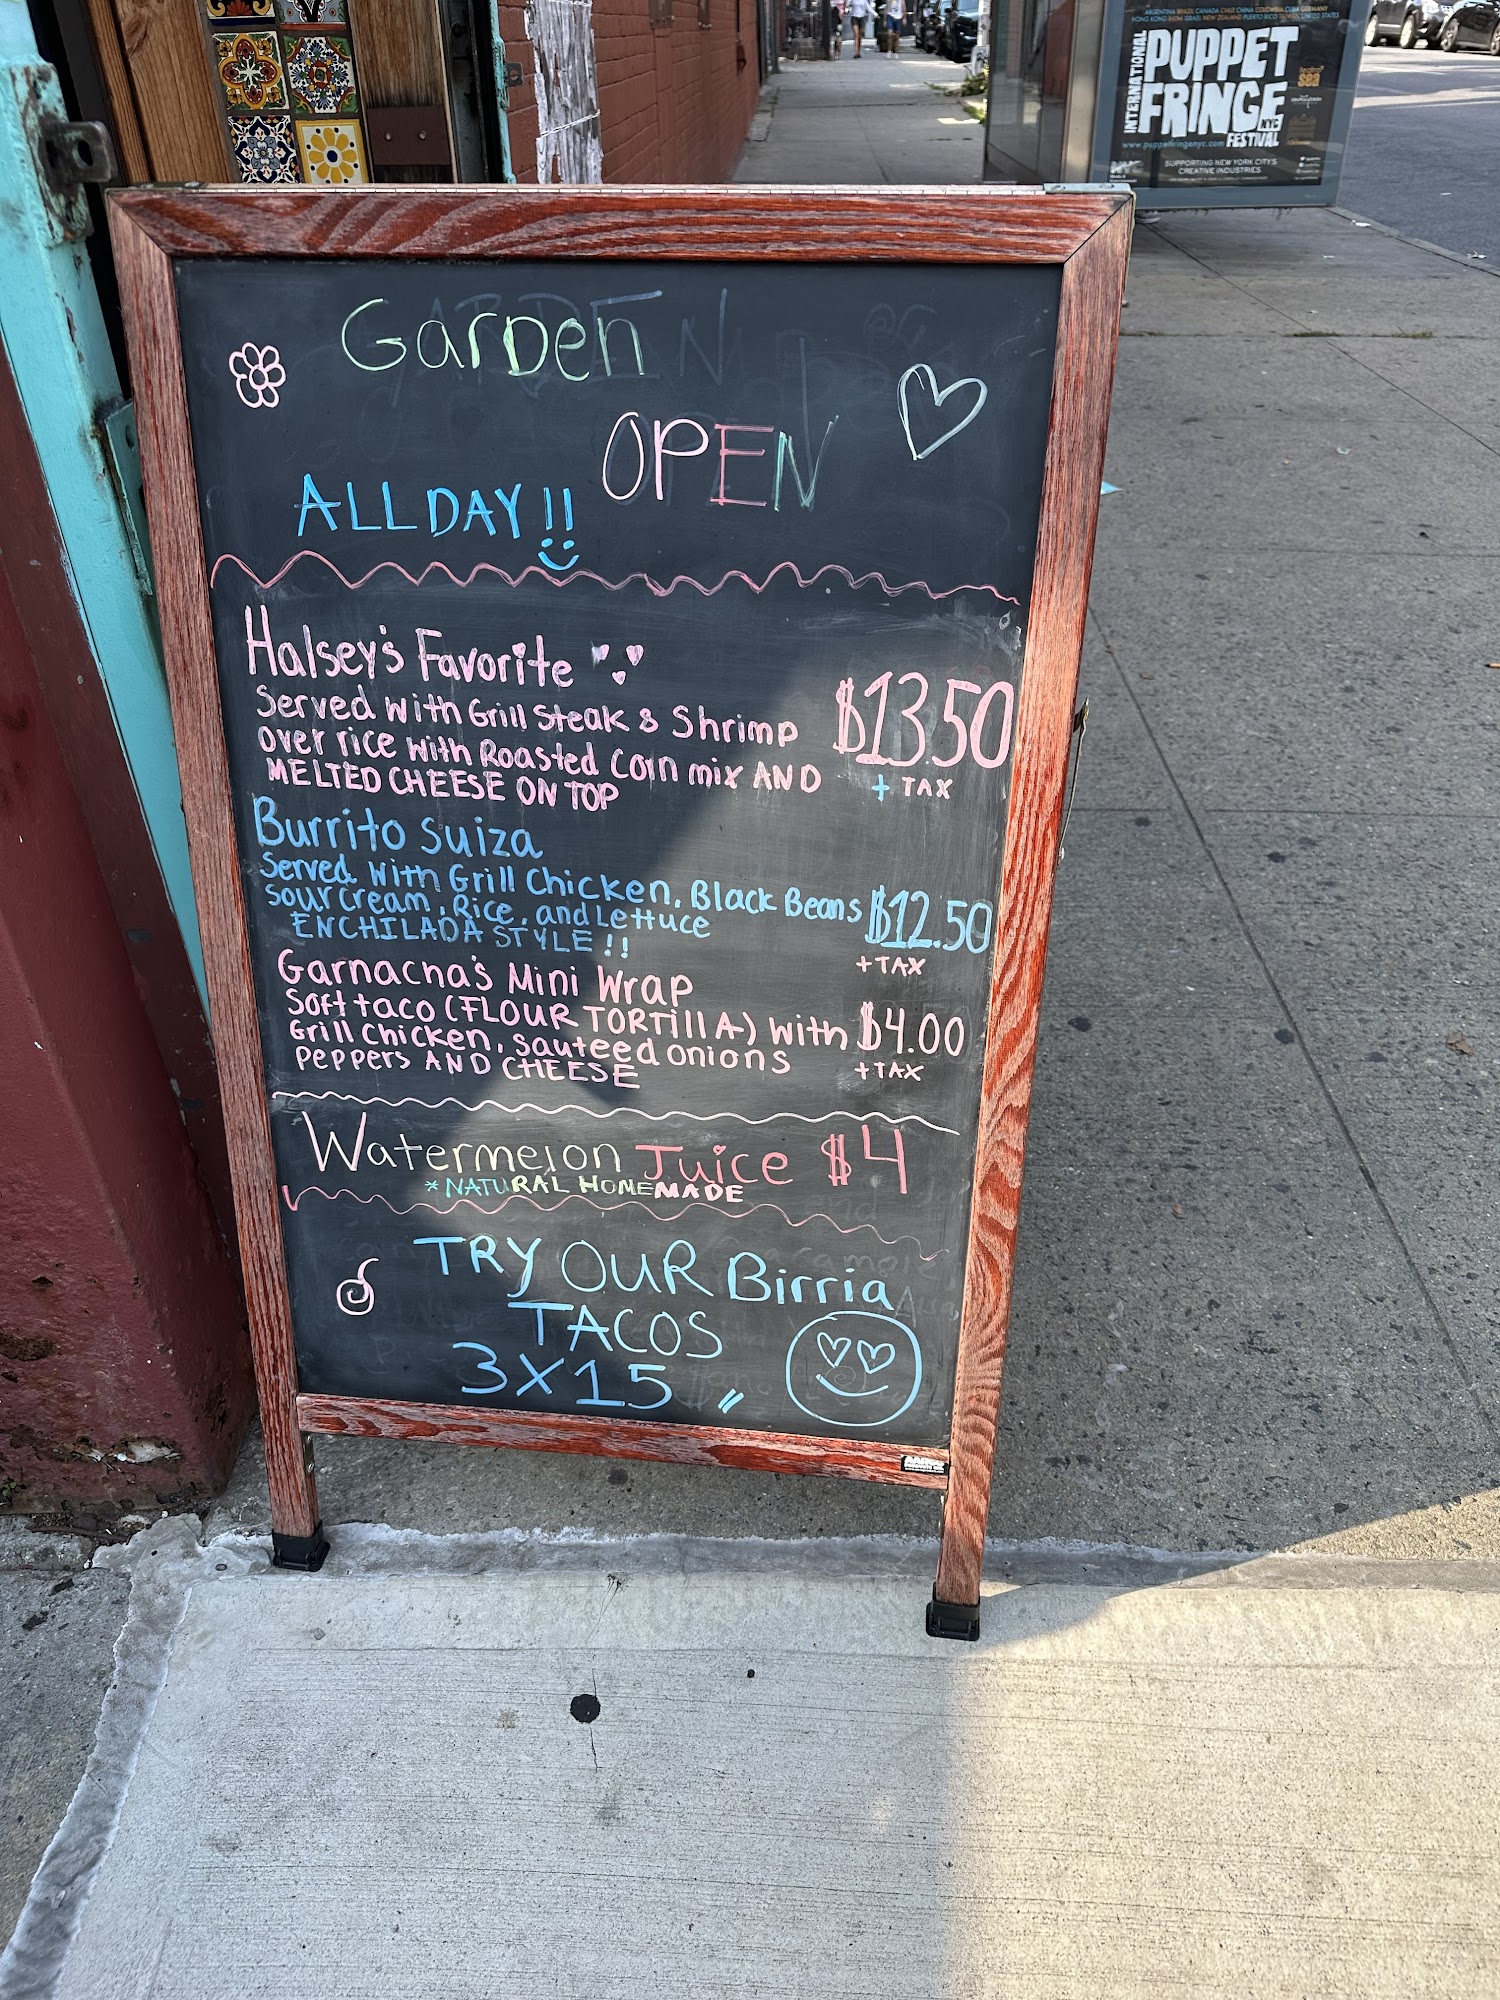 Garden
OPEN
ALL DAY!!
Halsey's Favorite
Served with Grill Steak & Shrimp
over rice with Roasted Corn mix AND
MELTED CHEESE ON TOP
$13.50
+ TAX
Burrito Suiza
Served with Grill Chicken, Black Beans
sour cream, Rice, and Lettuce
ENCHILADA STYLE!!
$12.50
+TAX
Garnacha's Mini Wrap
Soft taco (FLOUR TORTillA) with
Grill Chicken, sauteed onions
peppers AND CHEESE
$4.00
+TAX
Watermelon Juice $4
*NATURAL HOMEMADE
TRY OUR Birria
TACOS
3X15
ARGENTINA BRAZIL CANADA CHILE CHINA COLOMBIA CUBA GERMANY
HONG KONG INDIA ISRAEL NEW ZEALAND PUERTO RICO TAIWAN UNITED STATES
INTERNATIONAL
PUPPET
FRINGE
NYC
FESTIVAL
www.puppetfringenyc.com
SUPPORTING NEW YORK CITY'S
CREATIVE INDUSTRIES